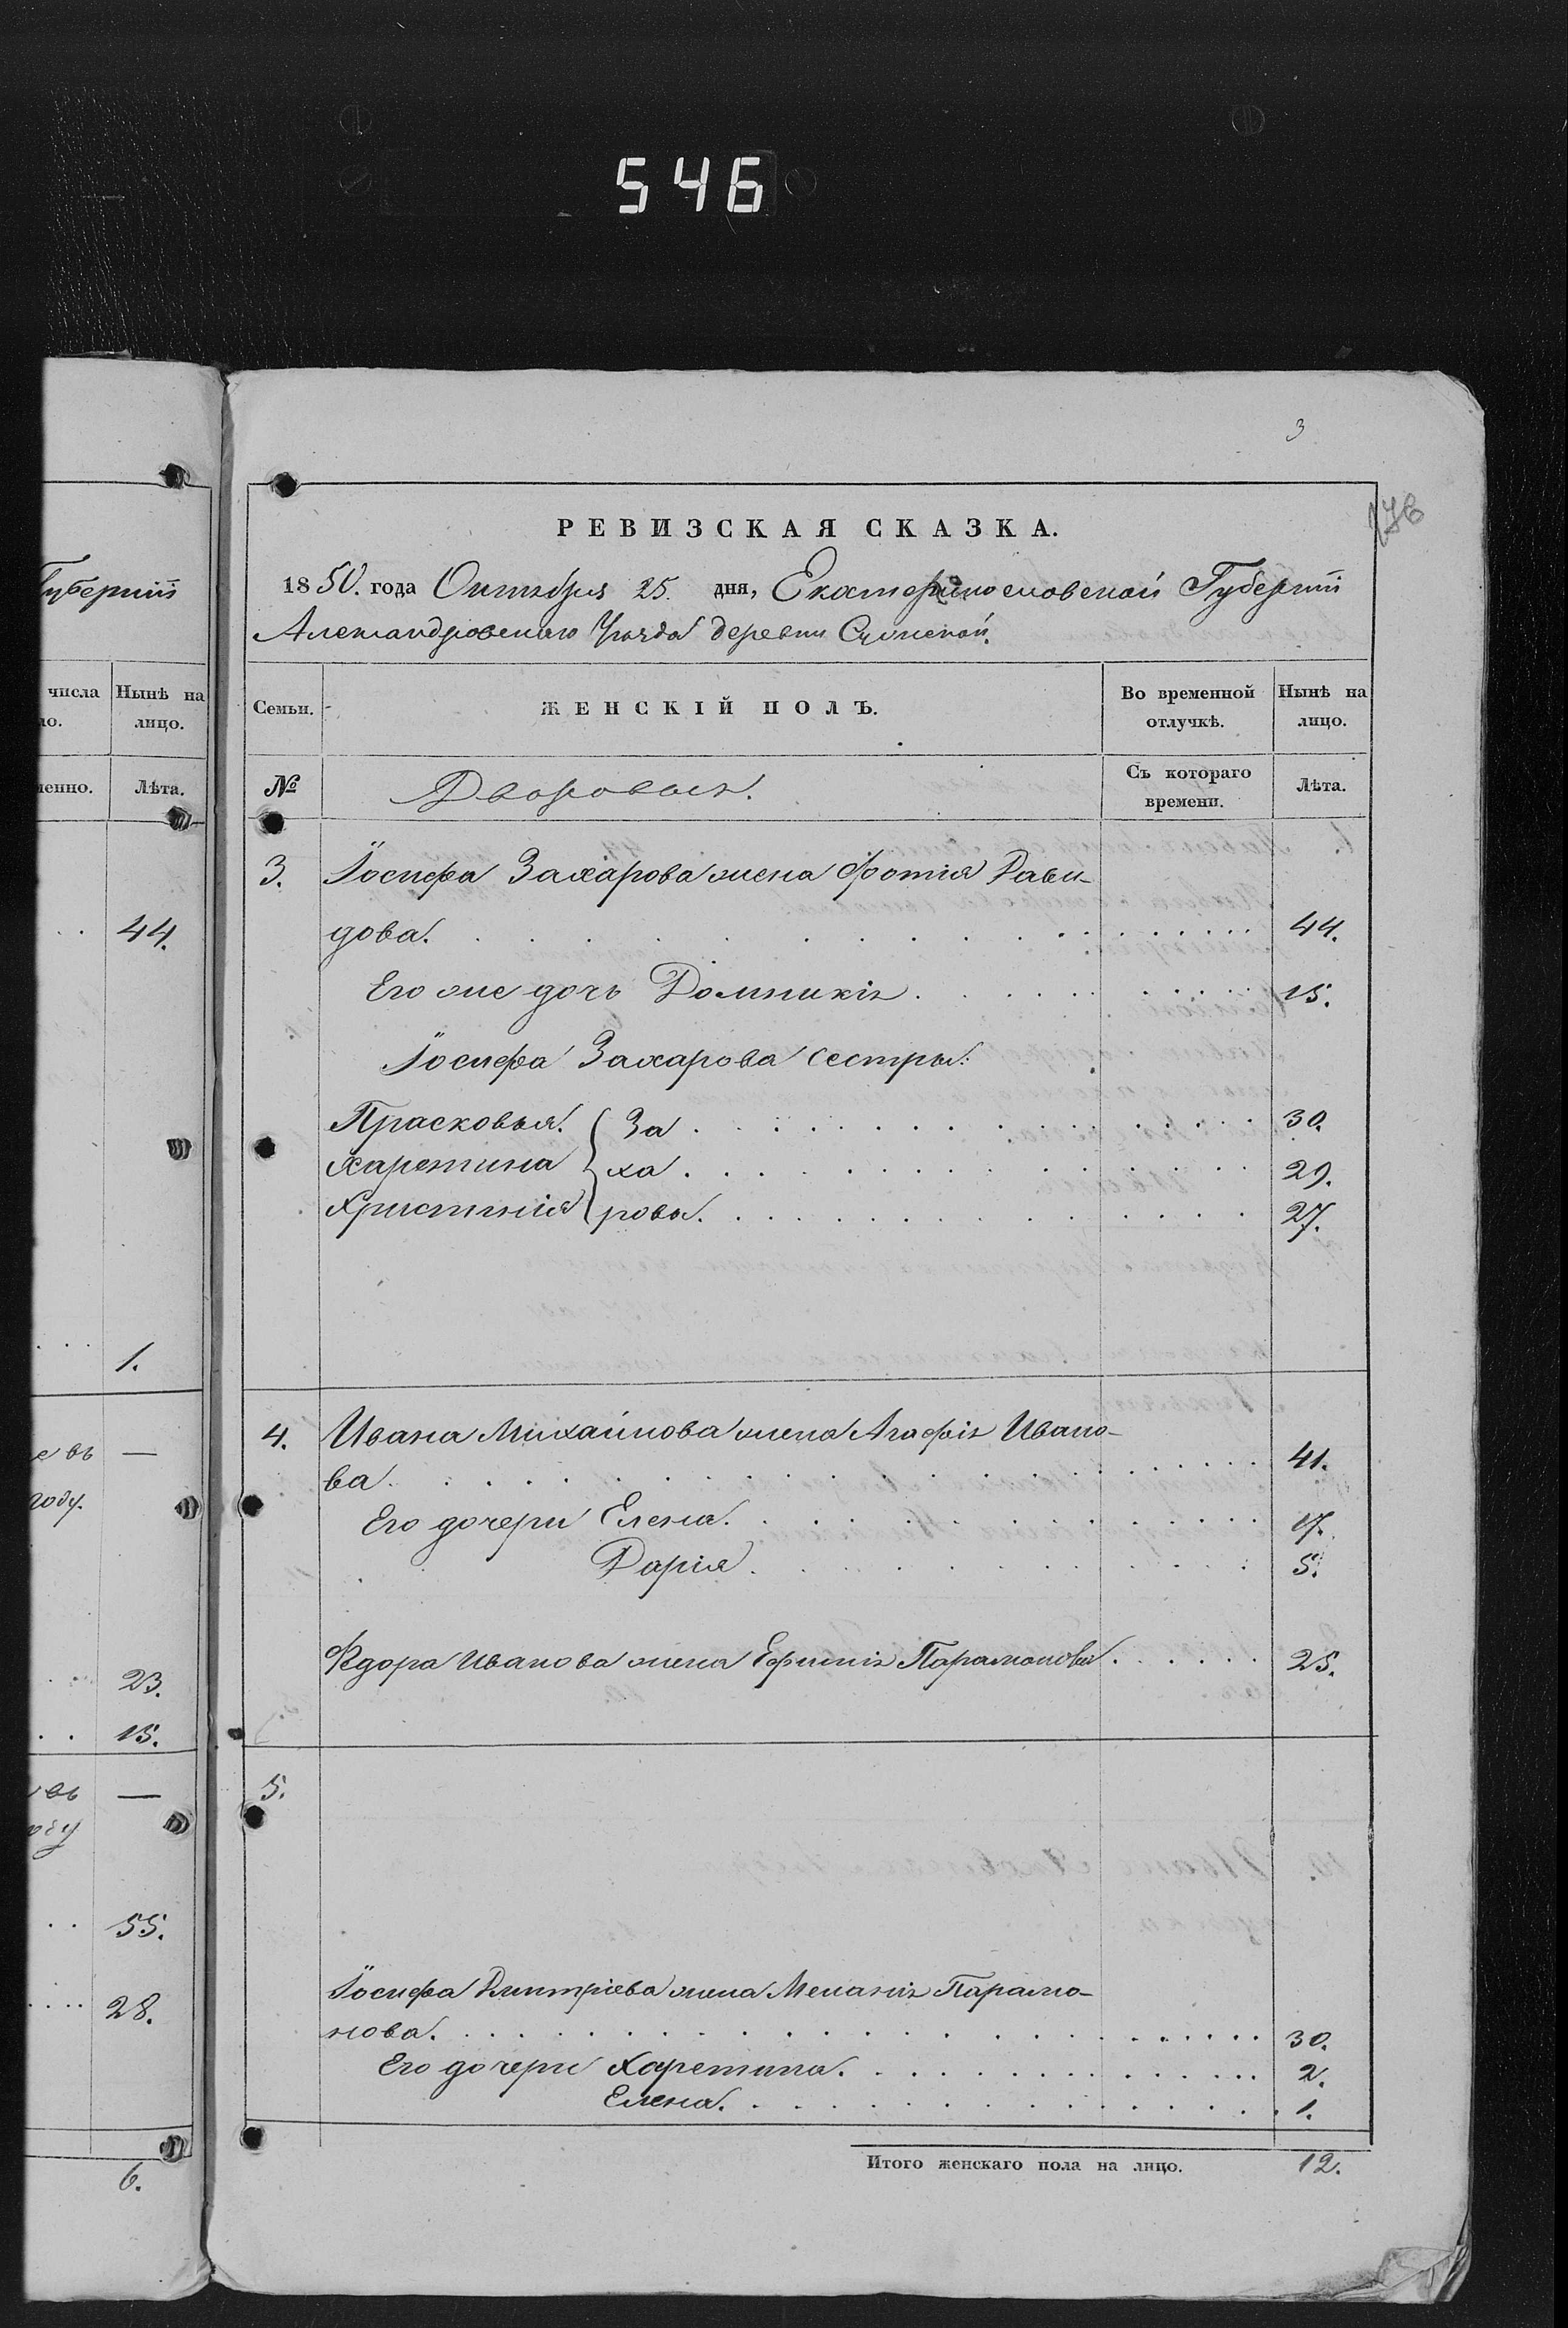 546
3
176
Губерніи
числа
Нынѣ на
лицо.
Лѣта.
44.
1.
е въ —
году.
23.
15.
въ —
оду
55.
28.
6.
РЕВИЗСКАЯ СКАЗКА.
1850. года Октября 25. дня, Екатеринославской Губерніи
Александровскаго Уѣзда деревни
Семьи. ЖЕНСКІЙ ПОЛЪ. Во временной отлучкѣ. Нынѣ на лицо.
№ Дворовыя. Съ котораго времени. Лѣта.
3. Іосифа Захарова жена Фотія Дави-
дова. 44.
Его же дочь Домникія 15.
Іосифа Захарова сестры:
Прасковья За 30.
Харетина ха 29.
Христинія ровы. 27.
4. Ивана Михайлова жена Агафія Ивано-
ва 41.
Его дочери Елена. 17.
Дарія 5.
Фєдора Иванова жена Ефимія Парамонова 25.
5.
Іосифа Дмитріева жена Меланія Парамо-
нова. 30.
Его дочери Харетина. 2.
Елена. 1.
Итого женскаго пола на лицо. 12.